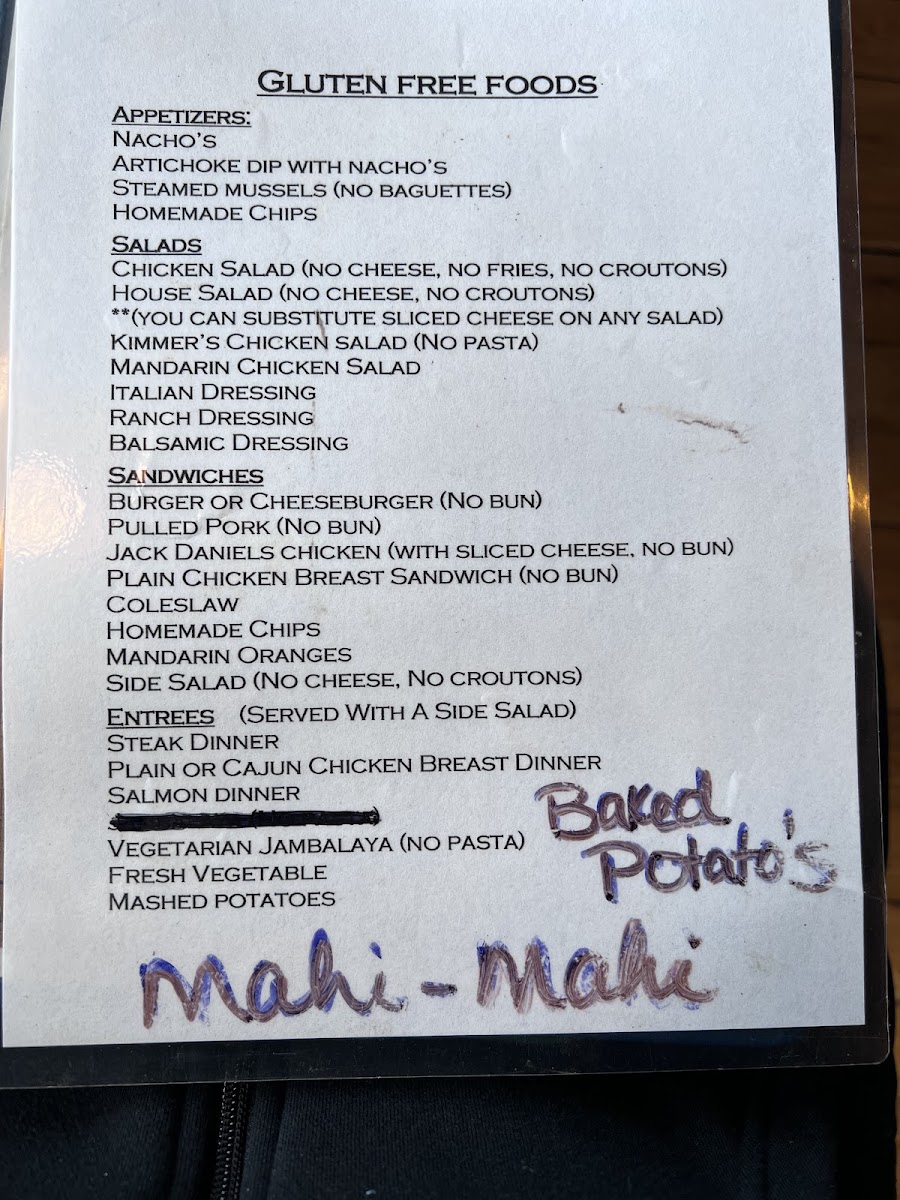 GLUTEN FREE FOODS
APPETIZERS:
NACHO'S
ARTICHOKE DIP WITH NACHO'S
STEAMED MUSSELS (NO BAGUETTES)
HOMEMADE CHIPS
SALADS
CHICKEN SALAD (NO CHEESE, NO FRIES, NO CROUTONS)
HOUSE SALAD (NO CHEESE, NO CROUTONS)
**(YOU CAN SUBSTITUTE SLICED CHEESE ON ANY SALAD)
KIMMER'S CHICKEN SALAD (NO PASTA)
MANDARIN CHICKEN SALAD
ITALIAN DRESSING
RANCH DRESSING
BALSAMIC DRESSING
SANDWICHES
BURGER OR CHEESEBURGER (NO BUN)
PULLED PORK (NO BUN)
JACK DANIELS CHICKEN (WITH SLICED CHEESE, NO BUN)
PLAIN CHICKEN BREAST SANDWICH (NO BUN)
COLESLAW
HOMEMADE CHIPS
MANDARIN ORANGES
SIDE SALAD (NO CHEESE, NO CROUTONS)
ENTREES (SERVED WITH A SIDE SALAD)
STEAK DINNER
PLAIN OR CAJUN CHICKEN BREAST DINNER
SALMON DINNER
VEGETARIAN JAMBALAYA (NO PASTA)
FRESH VEGETABLE
MASHED POTATOES
Baked
Potato's
Mahi-Mahi